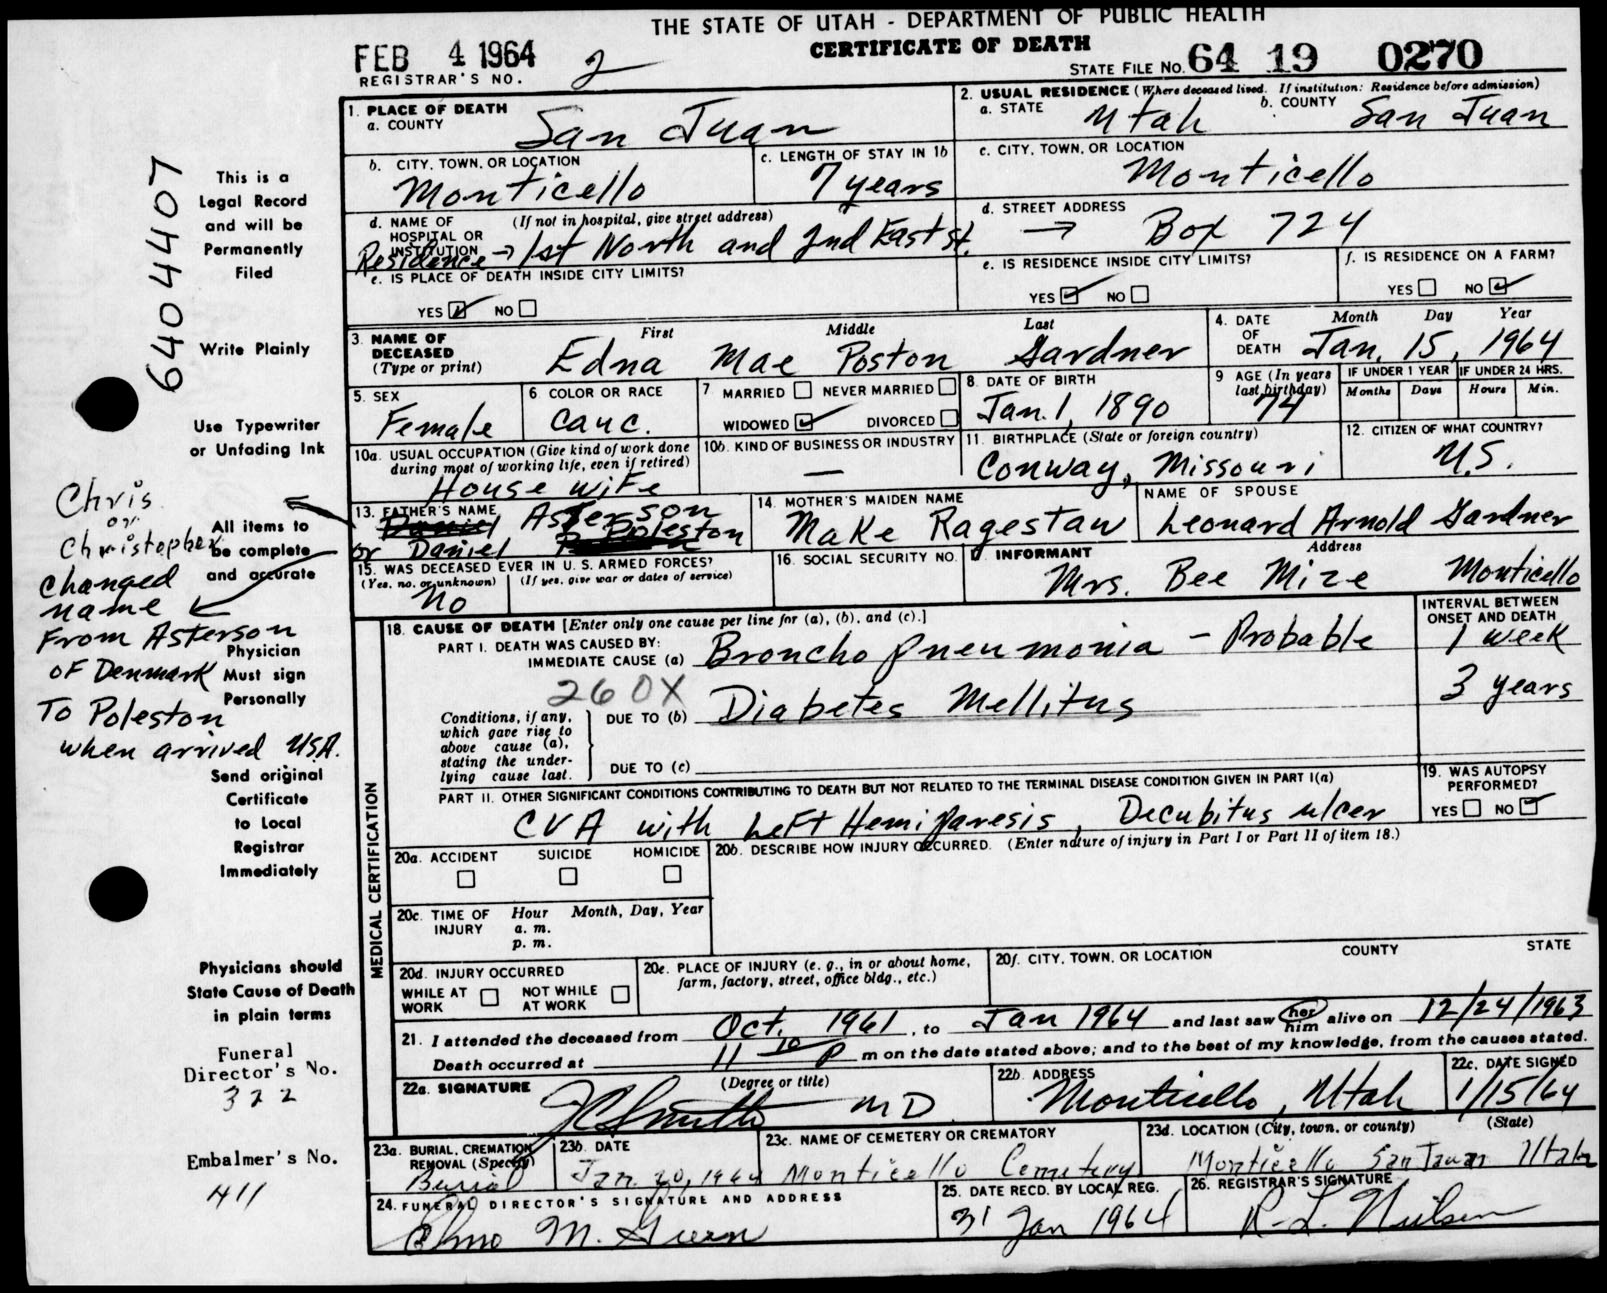 THE STATE OF UTAH - DEPARTMENT OF PUBLIC HEALTH
CERTIFICATE OF DEATH
FEB 4 1964
REGISTRAR'S NO. 2
STATE FILE NO. 64 19 0270
6404407
This is a
Legal Record
and will be
Permanently
Filed
Write Plainly
Use Typewriter
or Unfading Ink
All items to
be complete
and accurate
Physician
Must sign
Personally
Send original
Certificate
to Local
Registrar
Immediately
Physicians should
State Cause of Death
in plain terms
Funeral
Director's No.
322
Embalmer's No.
411
Chris
or
Christopher
changed
name
From Asterson
of Denmark
To Poleston
when arrived USA.
1. PLACE OF DEATH
a. COUNTY
San Juan
2. USUAL RESIDENCE (Where deceased lived. If institution: Residence before admission)
a. STATE Utah b. COUNTY San Juan
b. CITY, TOWN, OR LOCATION
Monticello
c. LENGTH OF STAY IN 1b
7 years
c. CITY, TOWN, OR LOCATION
Monticello
d. NAME OF HOSPITAL OR INSTITUTION (If not in hospital, give street address)
Residence → 1st North and 2nd East st.
d. STREET ADDRESS
→ Box 724
e. IS PLACE OF DEATH INSIDE CITY LIMITS?
YES ☑ NO ☐
e. IS RESIDENCE INSIDE CITY LIMITS?
YES ☑ NO ☐
f. IS RESIDENCE ON A FARM?
YES ☐ NO ☑
3. NAME OF DECEASED (Type or print)
First Middle Last
Edna Mae Poston Gardner
4. DATE OF DEATH Month Day Year
Jan. 15, 1964
5. SEX
Female
6 COLOR OR RACE
Cauc.
7 MARRIED ☐ NEVER MARRIED ☐
WIDOWED ☑ DIVORCED ☐
8. DATE OF BIRTH
Jan. 1, 1890
9 AGE (In years last birthday)
74
IF UNDER 1 YEAR IF UNDER 24 HRS.
Months Days Hours Min.
10a. USUAL OCCUPATION (Give kind of work done during most of working life, even if retired)
House wife
10b. KIND OF BUSINESS OR INDUSTRY
—
11. BIRTHPLACE (State or foreign country)
Conway, Missouri
12. CITIZEN OF WHAT COUNTRY?
U.S.
13. FATHER'S NAME
Daniel Asterson
or Daniel Poleston
14. MOTHER'S MAIDEN NAME
Make Ragestaw
NAME OF SPOUSE
Leonard Arnold Gardner
15. WAS DECEASED EVER IN U. S. ARMED FORCES?
(Yes, no, or unknown) (If yes, give war or dates of service)
No
16. SOCIAL SECURITY NO.
17. INFORMANT Address
Mrs. Bee Mize Monticello
18. CAUSE OF DEATH [Enter only one cause per line for (a), (b), and (c).]
INTERVAL BETWEEN ONSET AND DEATH
PART I. DEATH WAS CAUSED BY:
IMMEDIATE CAUSE (a) Broncho pneumonia - Probable 1 week
260X
Conditions, if any, which gave rise to above cause (a), stating the underlying cause last.
DUE TO (b) Diabetes Mellitus 3 years
DUE TO (c)
PART II. OTHER SIGNIFICANT CONDITIONS CONTRIBUTING TO DEATH BUT NOT RELATED TO THE TERMINAL DISEASE CONDITION GIVEN IN PART I(a)
CVA with Left Hemiparesis, Decubitus ulcer
19. WAS AUTOPSY PERFORMED?
YES ☐ NO ☑
MEDICAL CERTIFICATION
20a. ACCIDENT SUICIDE HOMICIDE
☐ ☐ ☐
20b. DESCRIBE HOW INJURY OCCURRED. (Enter nature of injury in Part I or Part II of item 18.)
20c. TIME OF INJURY Hour Month, Day, Year
a. m.
p. m.
20d. INJURY OCCURRED
WHILE AT WORK ☐ NOT WHILE AT WORK ☐
20e. PLACE OF INJURY (e. g., in or about home, farm, factory, street, office bldg., etc.)
20f. CITY, TOWN, OR LOCATION COUNTY STATE
21. I attended the deceased from Oct. 1961, to Jan 1964 and last saw her him alive on 12/24/1963
Death occurred at 11 10 P m on the date stated above; and to the best of my knowledge, from the causes stated.
22a. SIGNATURE (Degree or title)
Smith MD
22b. ADDRESS
Monticello, Utah
22c. DATE SIGNED
1/15/64
23a. BURIAL, CREMATION REMOVAL (Specify)
Burial
23b. DATE
Jan. 20, 1964
23c. NAME OF CEMETERY OR CREMATORY
Monticello Cemetery
23d. LOCATION (City, town, or county) (State)
Monticello San Juan Utah
24. FUNERAL DIRECTOR'S SIGNATURE AND ADDRESS
Elmo M.
25. DATE RECD. BY LOCAL REG.
31 Jan 1964
26. REGISTRAR'S SIGNATURE
R. L. Nielsen